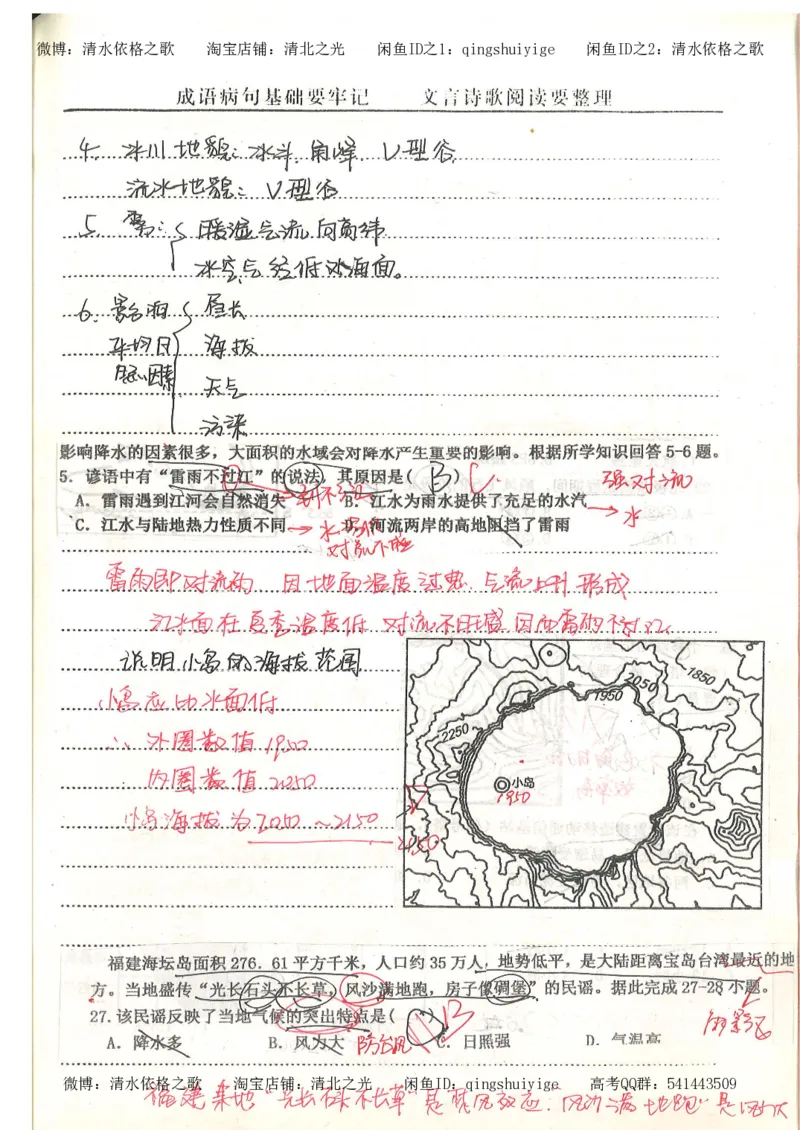 微博：清水依格之歌 淘宝店铺：清北之光 闲鱼ID之1：qingshuiyige 闲鱼ID之2：清水依格之歌
成语病句基础要牢记 文言诗歌阅读要整理
4. 冰川地貌：冰斗、角峰、U型谷
流水地貌：V型谷
5. 雾：暖湿气流向高纬
冷空气经低纬海面。
6. 影响 昼长
年均日 海拔
因素 天气
污染
影响降水的因素很多，大面积的水域会对降水产生重要的影响。根据所学知识回答5-6题。
5. 谚语中有“雷雨不过江”的说法，其原因是( B ) C 强对流
A. 雷雨遇到江河会自然消失 B. 江水为雨水提供了充足的水汽 → 水
C. 江水与陆地热力性质不同 → D. 河流两岸的高地阻挡了雷雨
对流不旺
雷雨即对流雨 因地面温度过热 气流上升形成
江水面在夏季温度低 对流不旺盛 因而雷雨不过江
说明小岛的海拔范围
小岛应比水面低
∴ 外圈数值1950
内圈数值2050
小岛海拔为2050～2150
1850
2050
1950
2250
小岛
1950
福建海坛岛面积276.61平方千米，人口约35万人，地势低平，是大陆距离宝岛台湾最近的地
方。当地盛传“光长石头不长草，风沙满地跑，房子像碉堡”的民谣。据此完成27-28小题。
27. 该民谣反映了当地气候的突出特点是( ) B
A. 降水多 B. 风力大 防台风 C. 日照强 D. 气温高
微博：清水依格之歌 淘宝店铺：清北之光 闲鱼ID：qingshuiyige 高考QQ群：541443509
福建某地“光长石头不长草”是 风效应．风沙满地跑”是风大